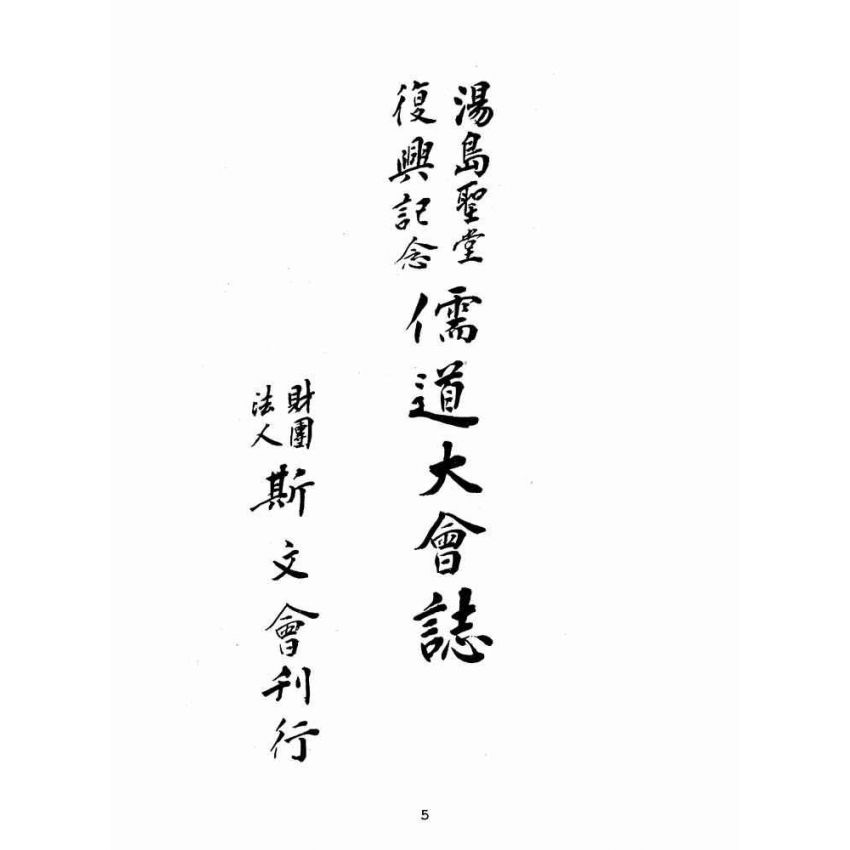 湯島聖堂
復興記念
儒道大會誌
財團
法人
斯文會刊行
5